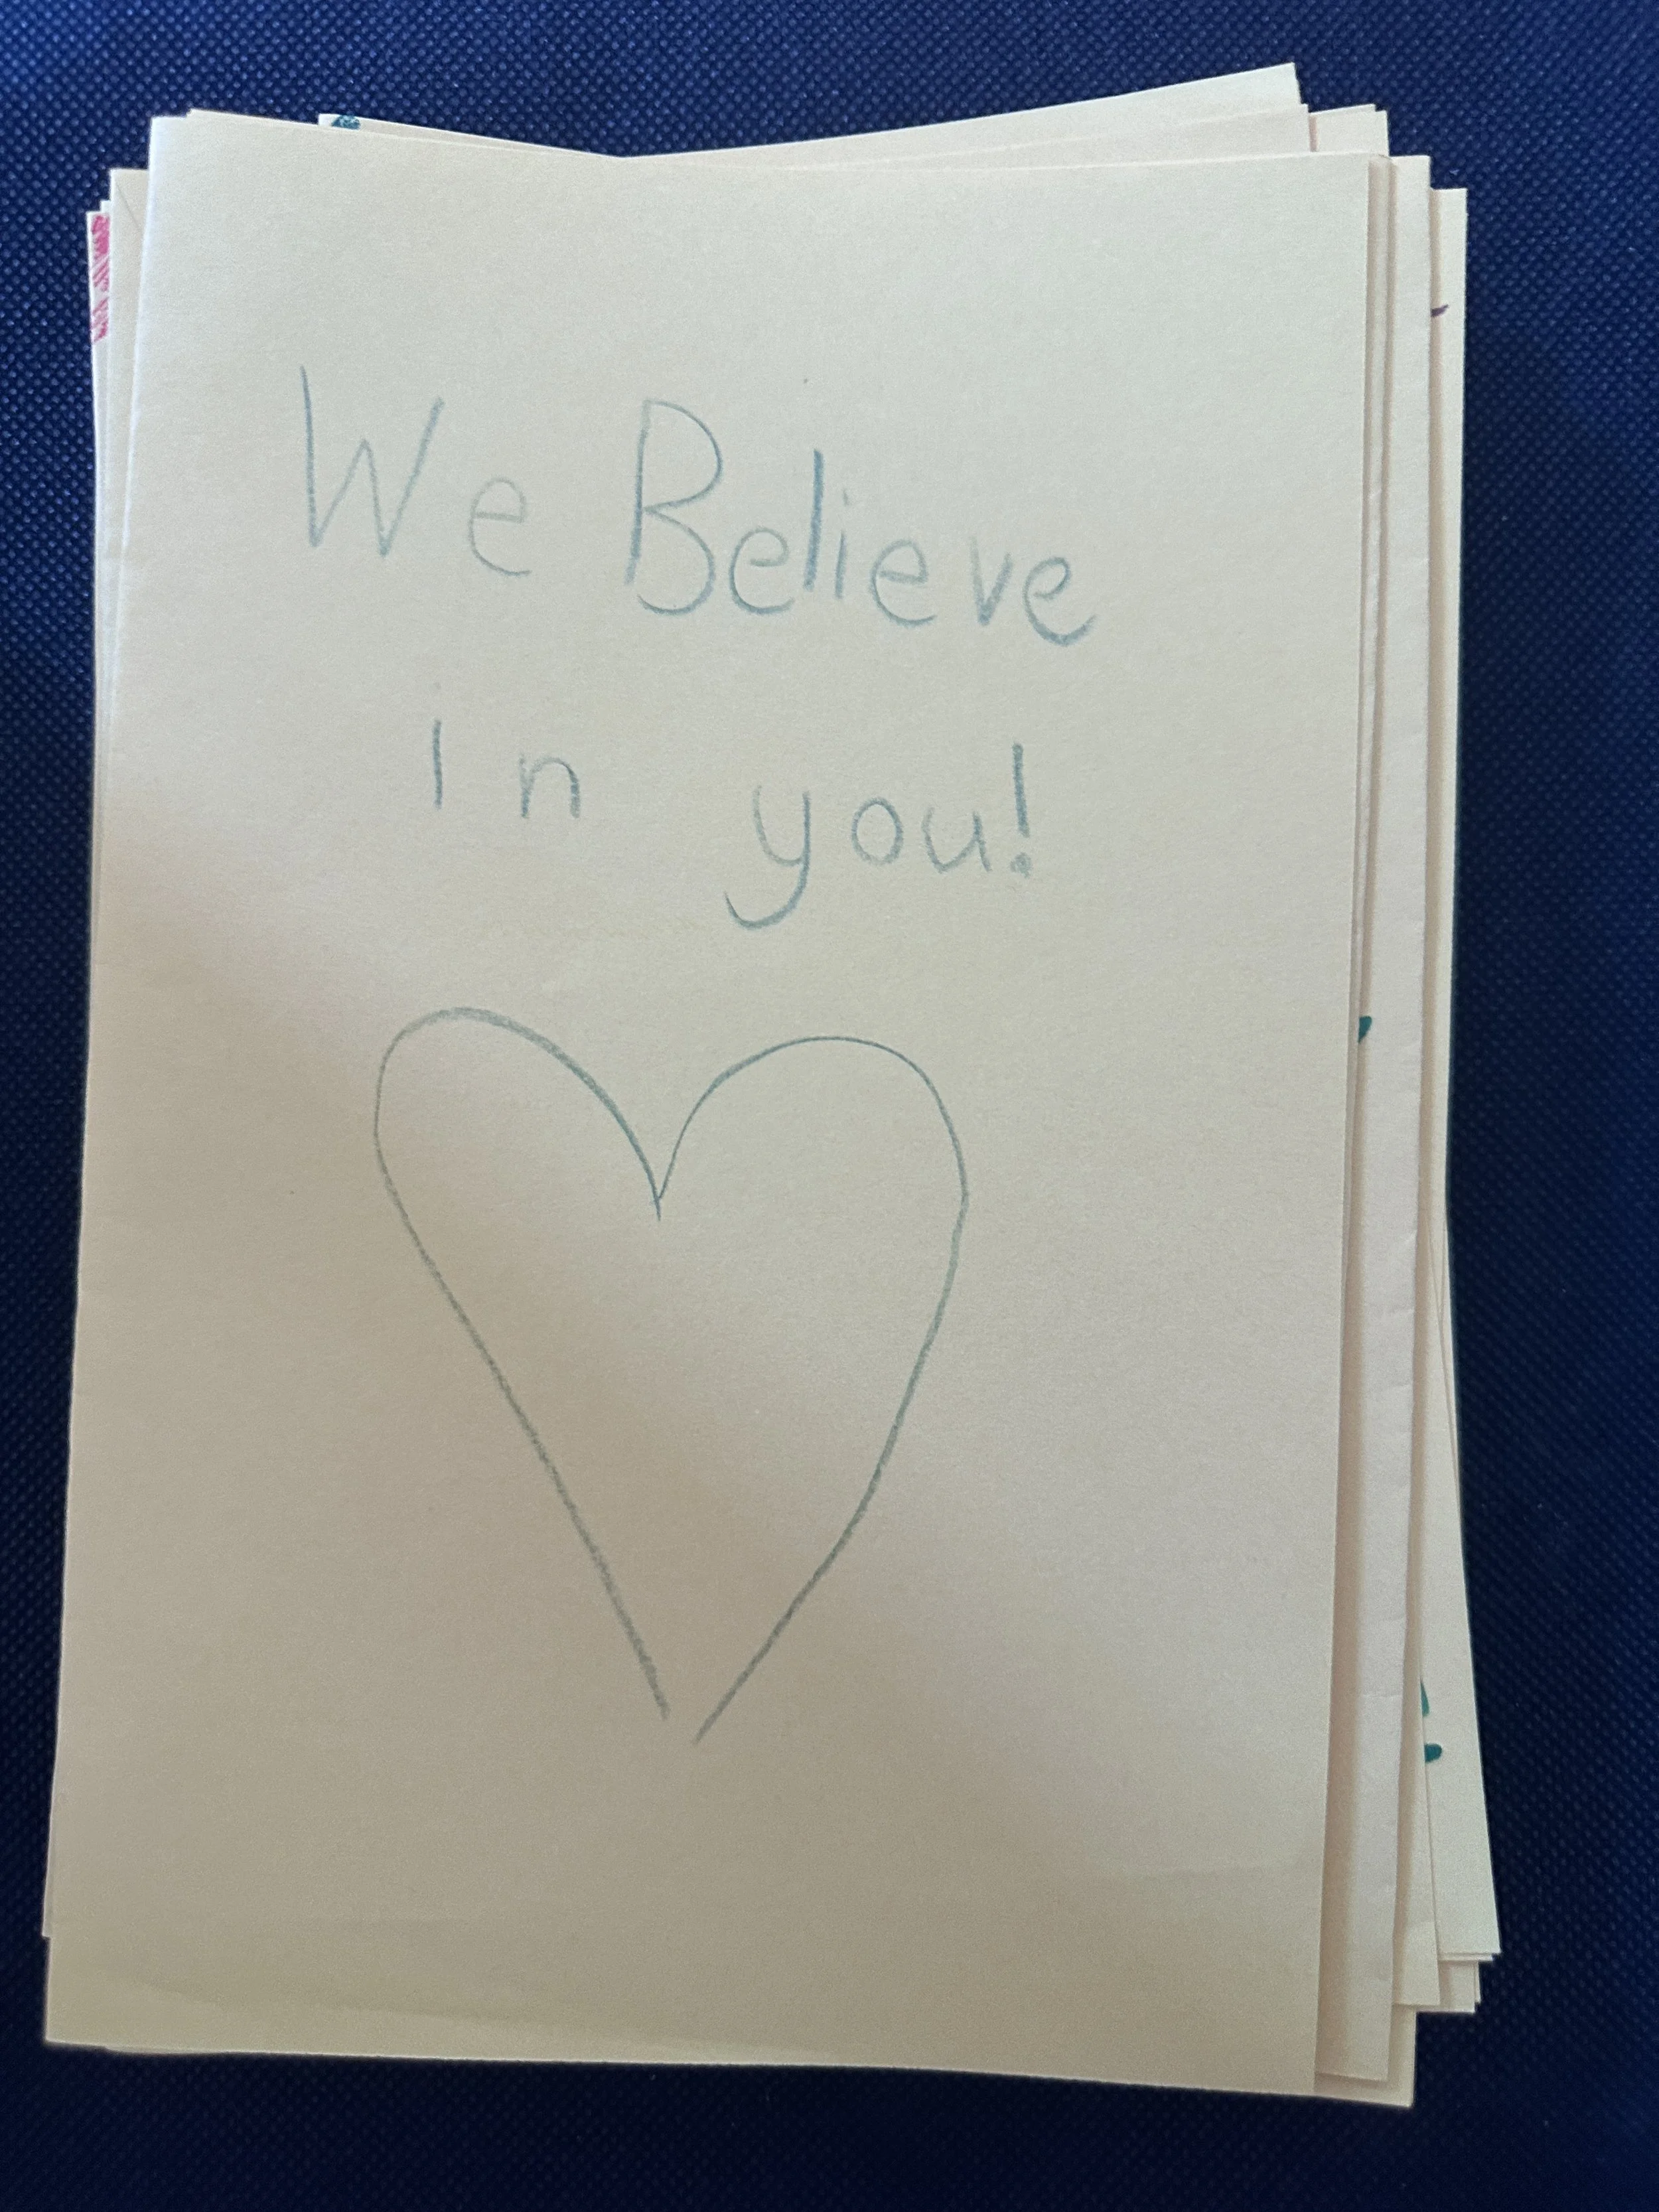 We Believe
in you!